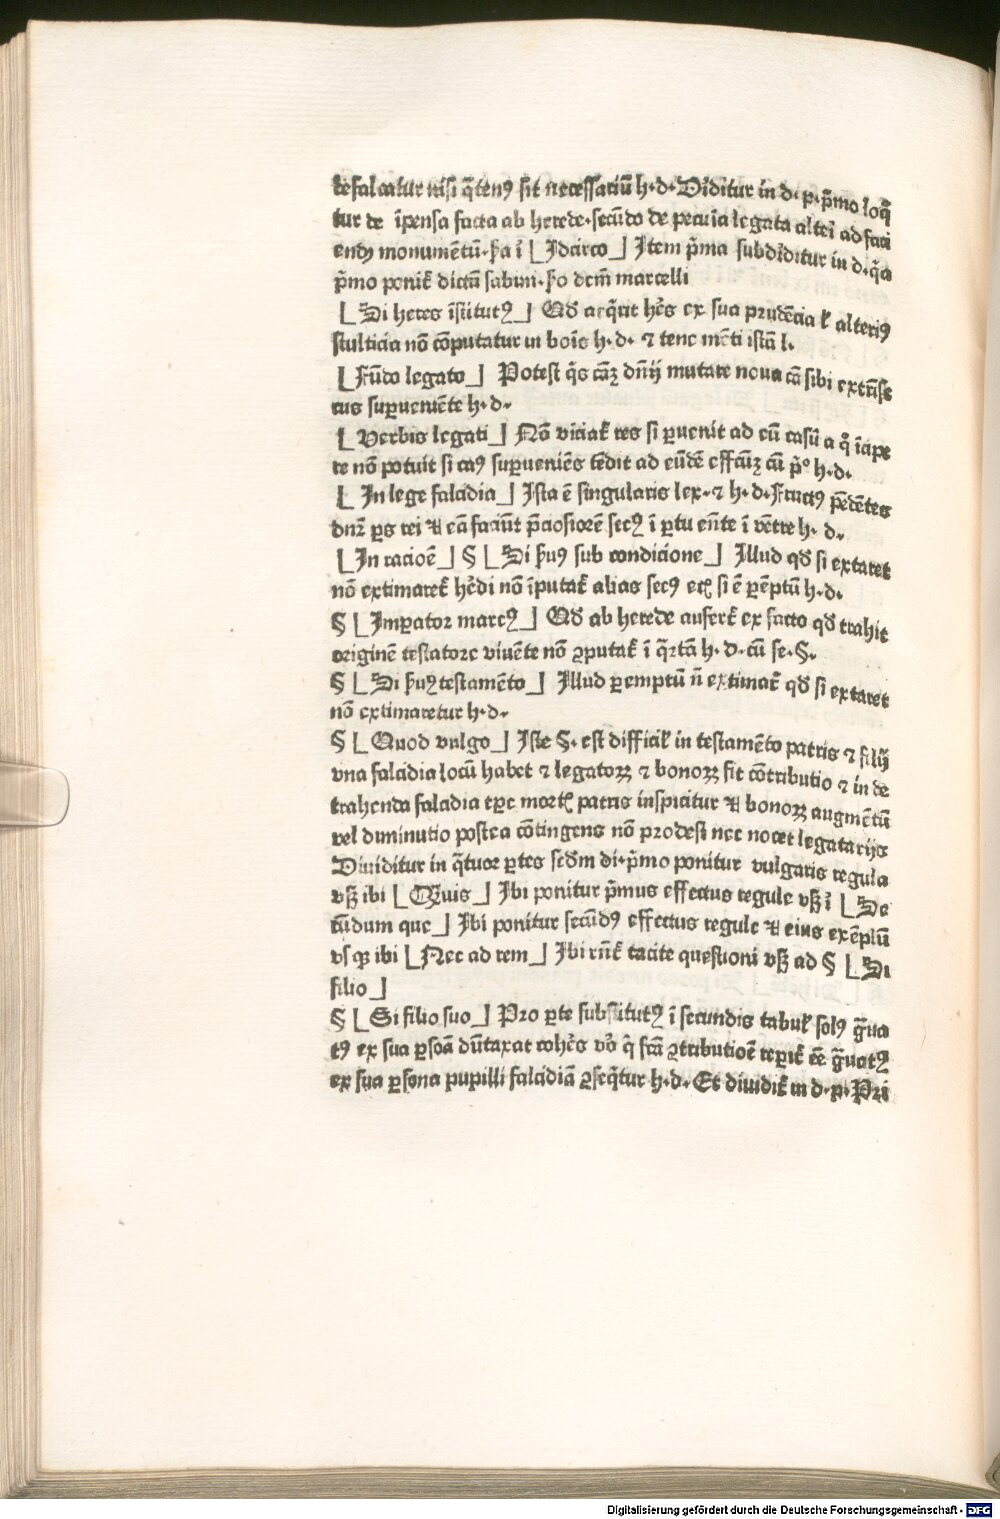 defalcatur nisi q̄tenꝰ sit necessariū h·d· Diuiditur in d·p· p̄mo loq̄
tur de īpensa facta ab herede· secūdo de pecūia legata alteri ad faci
endū monumētū· ẜa ī [Idcirco] Item p̄ma subdiuiditur in d· q̄a
p̄mo ponit᷑ dictū sabini· ẜo dcm̄ marcelli
[Si heres īstitutꝰ] Qd̄ acq̄rit hēs ex sua prudēcia ł alteriꝰ
stulticia nō cōputatur in boīs h·d· ⁊ tene mēti istā l·
[Fūdo legato] Potest q̄s cāꝫ dn̄ij mutare noua cā sibi extrīse
cus suꝑueniēte h·d·
[Verbis legati] Nō viciat᷑ res si ꝑuenit ad eū casū a q̊ īcipe
re nō potuit si caꝰ suꝑueniēs tēdit ad eūdē effcūꝫ cū p̄º h·d·
[In lege falcidia] Ista ē singularis lex· ⁊ h·d· Fructꝰ pēdētes
dn̄r ꝑs rei ⁊ eā faciūt p̄ciosiorē secꝰ ī ꝑtu en̄te ī vētre h·d·
[In racioē] § [Si ẜuꝰ sub condicione] Illud qd̄ si extaret
nō extimaret᷑ hēdi nō īputat᷑ alias secꝰ eciā si ē ꝑēptū h·d·
§ [Imꝑator marcꝰ] Qd̄ ab herede aufert᷑ ex facto qd̄ trahit
originē testatore viuēte nō ꝯputat᷑ ī q̄rtā h·d· cū se·§·
§ [Si ẜuꝰ testamēto] Illud ꝑemptū n̄ extimat᷑ qd̄ si extaret
nō extimaretur h·d·
§ [Quod vulgo] Iste §· est difficił in testamēto patris ⁊ filij
vna falcidia locū habet ⁊ legatoꝝ ⁊ bonoꝝ fit cōtributio ⁊ in de
trahenda falcidia tꝑe mortꝭ patris inspicitur ⁊ bonoꝝ augmētū
vel diminutio postea cōtingens nō prodest nec nocet legatarijs
Diuiditur in q̄tuor ꝑtes sedm di· p̄mo ponitur vulgaris regula
vsꝗ ibi [Quis] Ibi ponitur p̄mus effectus regule vsꝗ ī [Se
cūdum que] Ibi ponitur secūdꝰ effectus regule ⁊ eius exēplū
vsꝗ ibi [Nec ad rem] Ibi rn̄t᷑ tacite questioni vsꝗ ad § [Si
filio]
§ [Si filio suo] Pro ꝑte substitutꝰ ī secundis tabuł solꝰ g̃ua
tꝰ ex sua ꝑsoā dūtaxat cohēs vō q̄ fcā ꝯtributioē reꝑit᷑ eē g̃uatꝰ
ex sua ꝑsona pupilli falcidiā ꝯseq̄tur h·d· Et diuidit᷑ in d·p· Pri
Digitalisierung gefördert durch die Deutsche Forschungsgemeinschaft - DFG